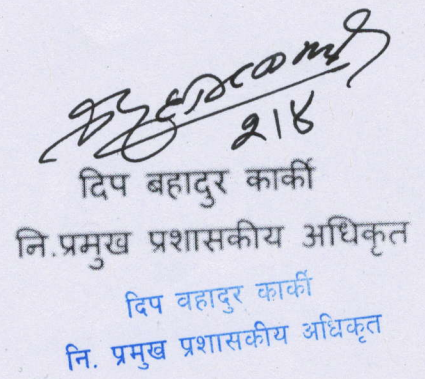 २।४
दिप बहादुर कार्की
नि.प्रमुख प्रशासकीय अधिकृत
दिप वहादुर कार्की
नि. प्रमुख प्रशासकीय अधिकृत